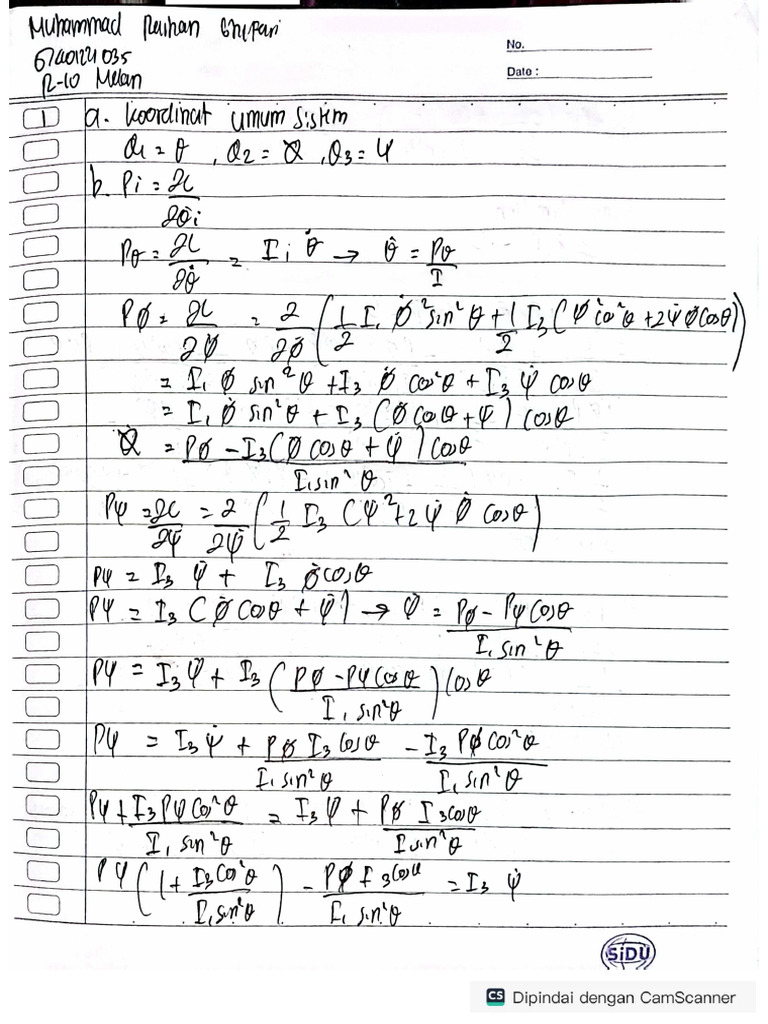 Muhammad Raihan
No.
Date :
R-10
1 a. koordinat umum sistem
Q1 = θ , Q2 = Ø , Q3 = Ψ
b. Pi = ∂L/∂Q̇i
Pθ = ∂L/∂θ̇ = I1 θ̇ → θ̇ = Pθ/I
PØ = ∂L/∂Ø̇ = ∂/∂Ø̇ (1/2 I1 Ø̇² sin²θ + 1/2 I3 ( Ø̇ cos²θ + 2Ψ̇ Ø̇ cosθ))
= I1 Ø̇ sin²θ + I3 Ø̇ cos²θ + I3 Ψ̇ cosθ
= I1 Ø̇ sin²θ + I3 (Ø̇ cosθ + Ψ̇) cosθ
Ø̇ = PØ - I3 (Ø̇ cosθ + Ψ̇) cosθ / I1 sin²θ
PΨ = ∂L/∂Ψ̇ = ∂/∂Ψ̇ (1/2 I3 (Ψ̇² + 2Ψ̇ Ø̇ cosθ)
PΨ = I3 Ψ̇ + I3 Ø̇ cosθ
PΨ = I3 (Ø̇ cosθ + Ψ̇) → Ø̇ = PØ - PΨ cosθ / I1 sin²θ
PΨ = I3 Ψ̇ + I3 (PØ - PΨ cosθ / I1 sin²θ) cosθ
PΨ = I3 Ψ̇ + PØ I3 cosθ / I1 sin²θ - I3 PØ cos²θ / I1 sin²θ
PΨ + I3 PΨ cos²θ / I1 sin²θ = I3 Ψ̇ + PØ I3 cosθ / I sin²θ
PΨ (1 + I3 cos²θ / I1 sin²θ) - PØ I3 cosθ / I1 sin²θ = I3 Ψ̇
SiDU
CS Dipindai dengan CamScanner